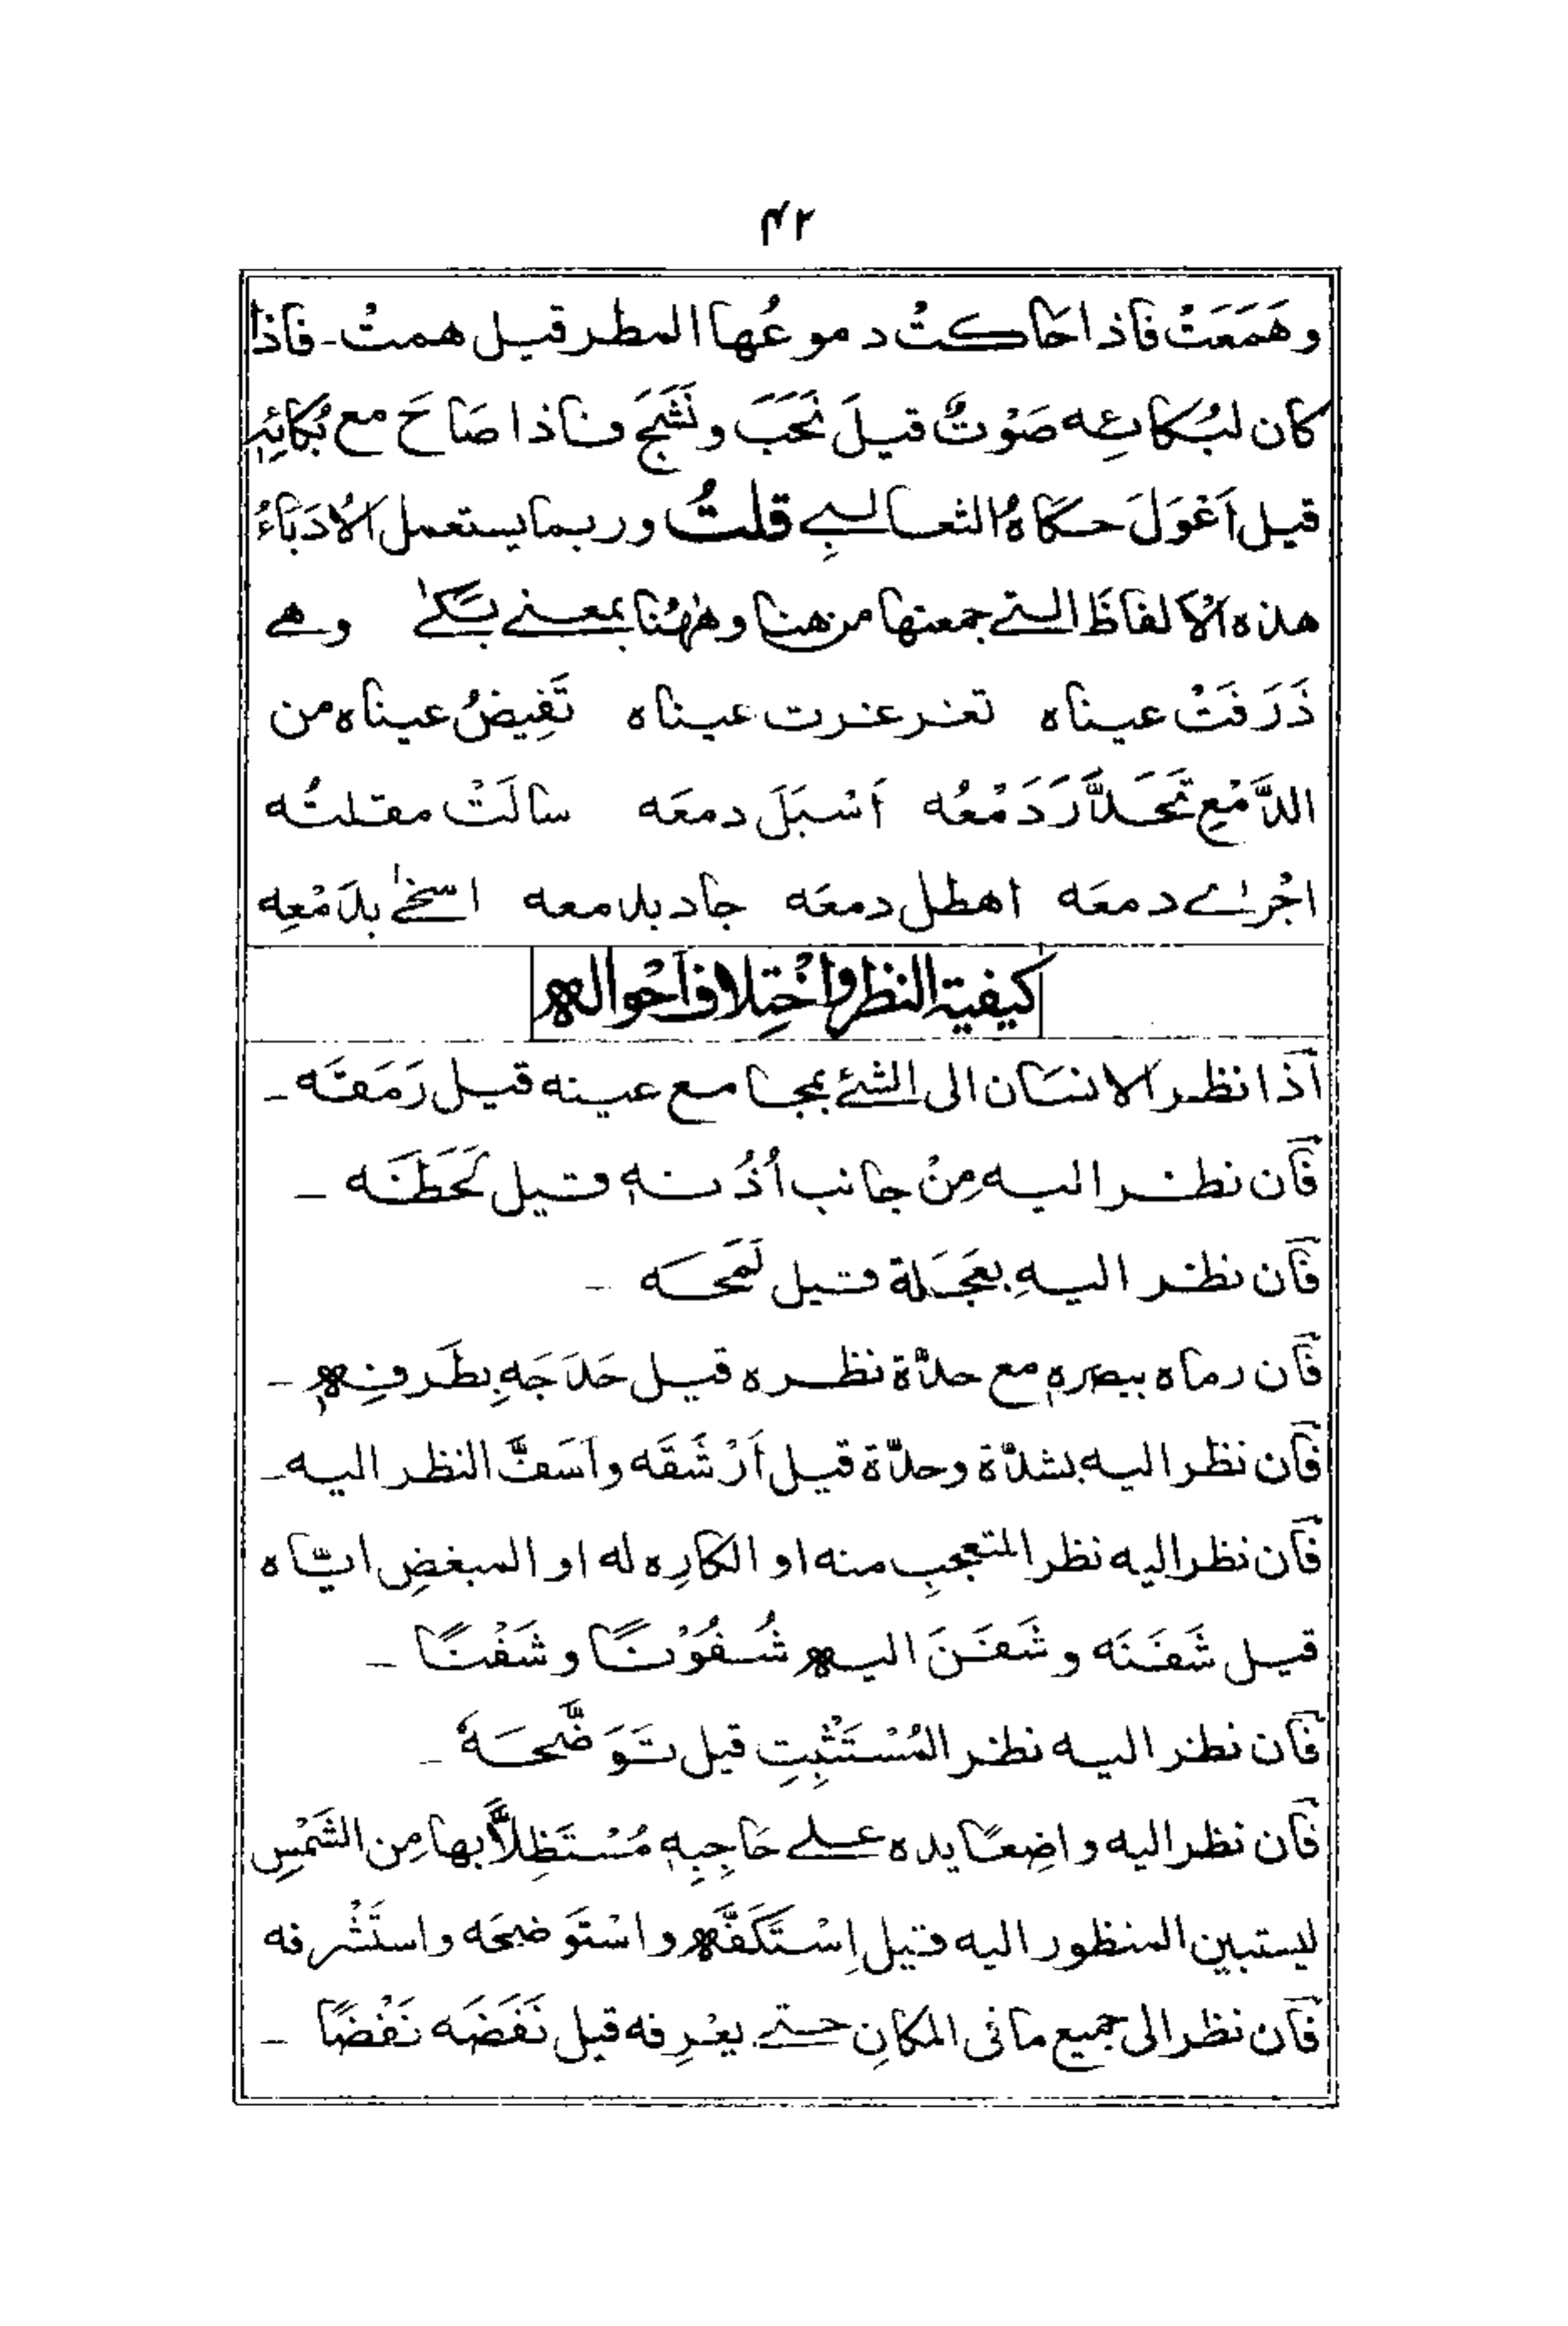 ۴۲
وهَمَعَتْ فاذا حاكتْ دموعُها المطر قيل همتْ - فاذا
كان لبُكائِه صَوْتٌ قيلَ نَحَبَ ونَشَجَ فاذا صَاحَ مع بُكائِهٖ
قيل اَعْوَلَ حكاهُ الثعالبِي قلتُ وربما يستعمل الاُدَبَاءُ
هذه الالفاظَ التي جمعتها من هنا وهٰهُنا بمعنى بَكىٰ وهي
ذَرَفَتْ عيناه تغرغرت عيناه تَفِيضُ عيناه من
الدَّمْعِ تَحَدَّرَ دَمْعُه اَسْبَلَ دمعَه سالَتْ مقلتُه
اجْرٰى دمعَه اهطل دمعَه جاد بدمعه اسخىٰ بدَمْعِه
كيفية النظر واخْتِلاف اَحْواله
اذا نظر الانسَان الى الشئ بمجامع عينه قيل رَمَقَه -
فان نظر اليه مِنْ جانب اُذُنهٖ قيل لَحَظَه -
فان نظر اليهِ بعَجَلة قيل لَمَحَه -
فان رماه ببصرهٖ مع حدّة نظره قيل حَدَجَهِ بطَرفِهٖ -
فان نظر اليه بشدّة وحدّة قيل اَرْشَقَه واَسَفَّ النظر اليه -
فان نظر اليه نظر المتعجبِ منه او الكارِه له او المبغضِ ايّاه
قيل شَفَنَه وشَفَنَ اليه شُفُوْنًا وشَفْنًا -
فان نظر اليه نظر المُسْتَثْبِتِ قيل تَوَضَّحَهٗ -
فان نظر اليه واضِعًا يده على حَاجِبِهٖ مُسْتَظِلاًّ بها مِن الشَمْسِ
ليستبين المنظور اليه قيل اِسْتَكَفَّه واسْتَوضحَه واستَشْرفه
فان نظر الى جميع ما فى المكانِ حتى يعْرِفه قيل نَفَضَه نَفْضًا -